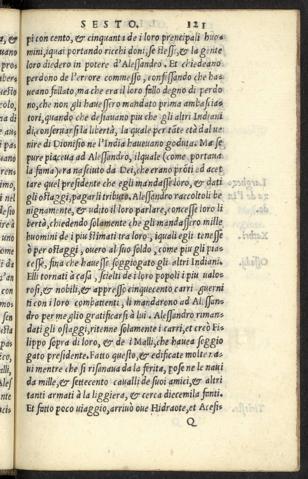 SESTO. 121
pi con cento, & cinquanta de i loro prencipali huo-
mini, iquai portando ricchi doni, se stessi, & la gente
loro diedero in potere d'Alessandro. Et chiedeano
perdono de l'errore commesso, confessando che ha-
ueano fallato, ma che era il loro fallo degno di perdo
no, che non gli hauessero mandato prima ambascia-
tori, quando che desiauano piu che gli altri Indiani
di conseruarsi la libertà, la quale per tãte età dal ue
nire di Dionisio ne l'India haueuano goduta. Ma se
pure piaceua ad Alessandro, ilquale (come portaua
la fama) era nasciuto da Dei, che erano prõti ad acet
tare quel presidente che egli mandasse loro, & dati
gli ostaggi, pagarli tributo. Alessandro raccoltoli be
nignamente, & udito il loro parlare, concesse loro li
bertà, chiedendo solamente che gli mandassero mille
huomini de i piu stimati tra loro, iquali egli tenesse
ò per ostaggi, ouero al suo soldo, come piu gli piac-
cesse, fina che hauesse soggiogato gli altri Indiani.
Elli tornati à casa, scielti de i loro popoli i piu ualo-
rosi, & nobili, & appresso cinquecento carri guerni
ti con i loro combattenti, li mandarono ad Alessan-
dro per meglio gratificarsi à lui. Alessandro riman-
dati gli ostaggi, ritenne solamente i carri, et creò Fi-
lippo sopra di loro, & de i Malli, che hauea soggio
gato presidente. Fatto questo, & edificate molte na-
ui mentre che si risanaua da la ferita, pose ne le naui
da mille, & settecento caualli de suoi amici, & altri
tanti armati à la liggiera, & cerca diecemila fanti.
Et fatto poco uiaggio, arriuò oue Hidraote, et Acesi-
Q